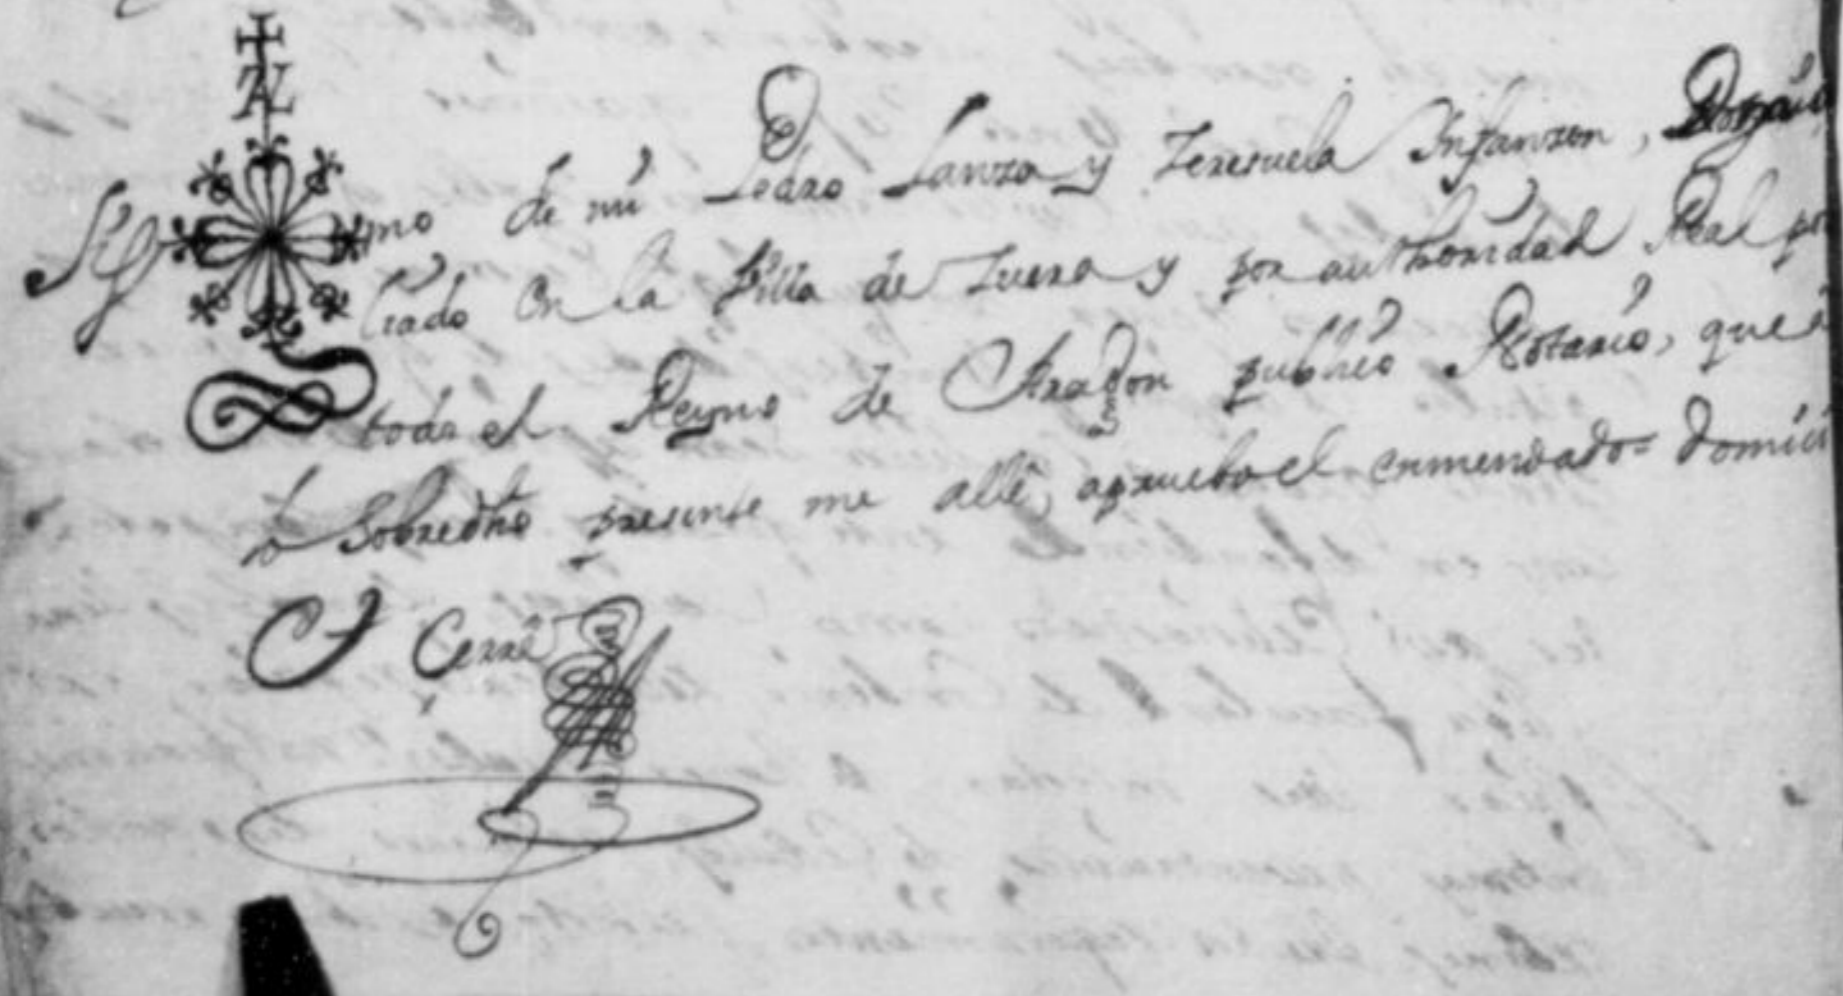 Sig no de mi Pedro Lanza y Terezuela Infanzon, Domici
liado en la Villa de Zuera y por authoridad Real por
todo el Reyno de Aragon publico Notario, que a
lo sobredho presente me allé, apruebo el enmendado = Domici
Cerré